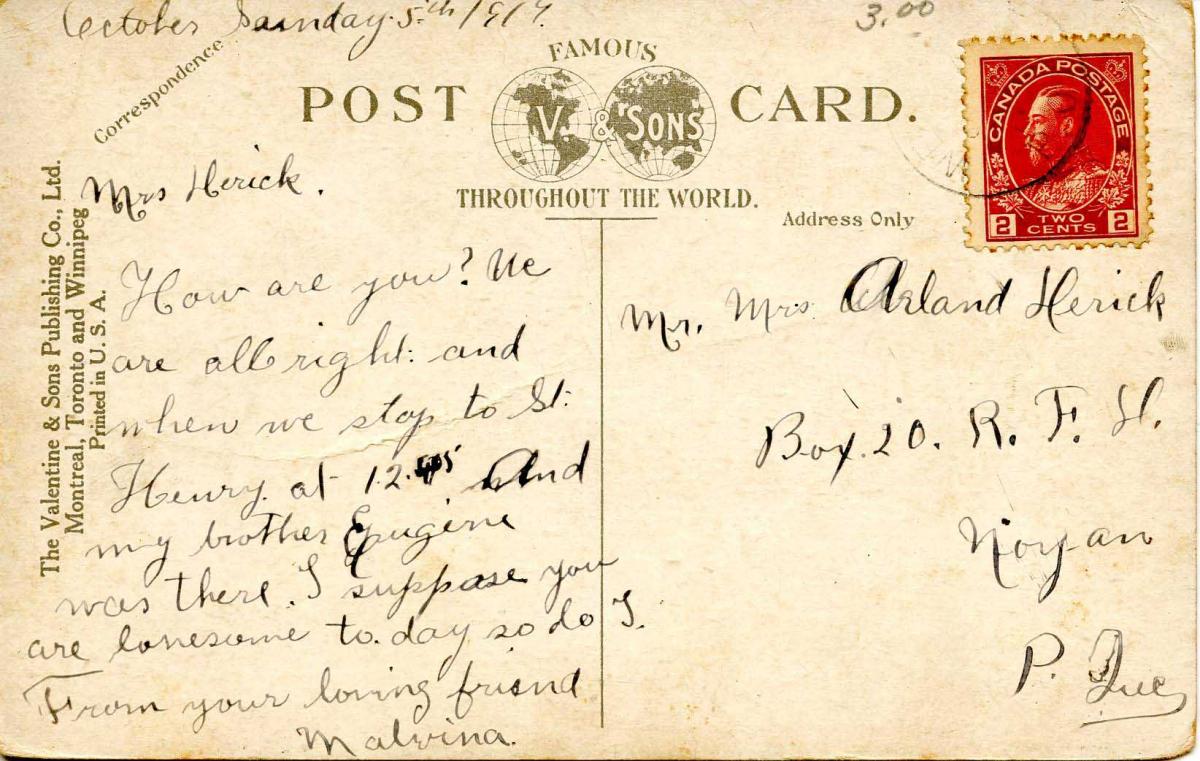 October Sunday 5th 1919.
3.00
Correspondence
FAMOUS
POST CARD.
V. & SONS
THROUGHOUT THE WORLD.
Address Only
CANADA POSTAGE
2 TWO CENTS 2
The Valentine & Sons Publishing Co., Ltd.
Montreal, Toronto and Winnipeg
Printed in U. S. A.
Mrs Herick.
How are you? We
are all right: and
when we stop to St.
Henry at 12.45 And
my brother Eugine
was there. I suppose you
are lonesome to.day so do I.
From your loving friend
Malvina.
Mr. Mrs Arland Herick
Box 20. R. F. H.
Noyan
P. Que